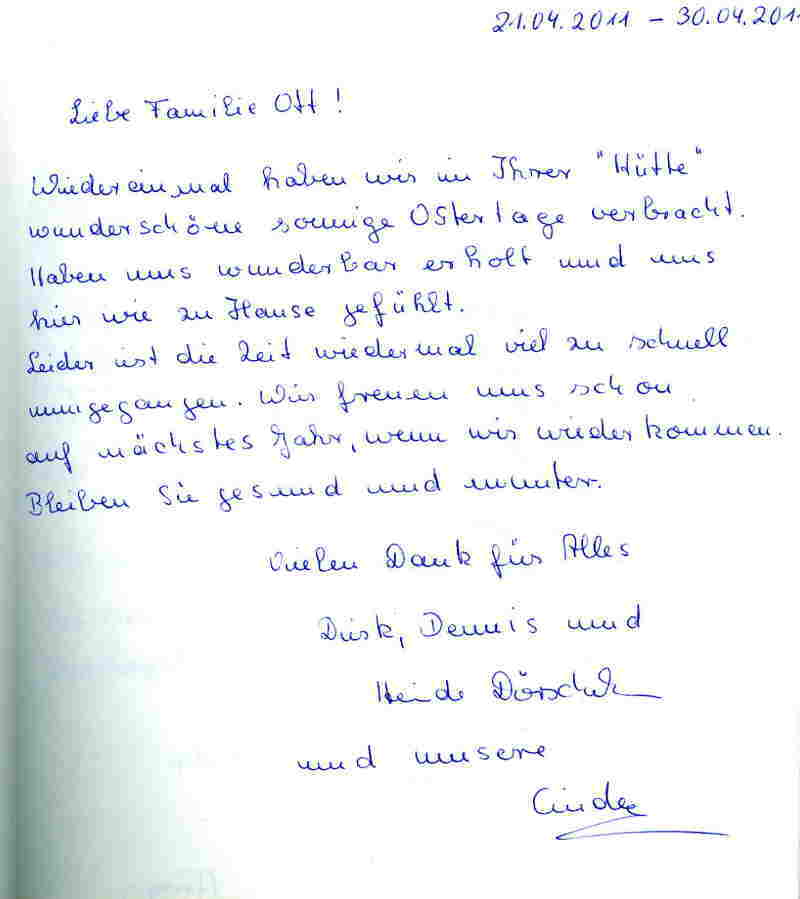 21.04.2011 – 30.04.2011
Liebe Familie Ott!
Wieder einmal haben wir in Ihrer "Hütte"
wunderschöne sonnige Ostertage verbracht.
Haben uns wunderbar erholt und uns
hier wie zu Hause gefühlt.
Leider ist die Zeit wiedermal viel zu schnell
umgegangen. Wir freuen uns schon
auf nächstes Jahr, wenn wir wieder kommen.
Bleiben Sie gesund und munter.
Vielen Dank für Alles
Dirk, Dennis und
Heide
und unsere